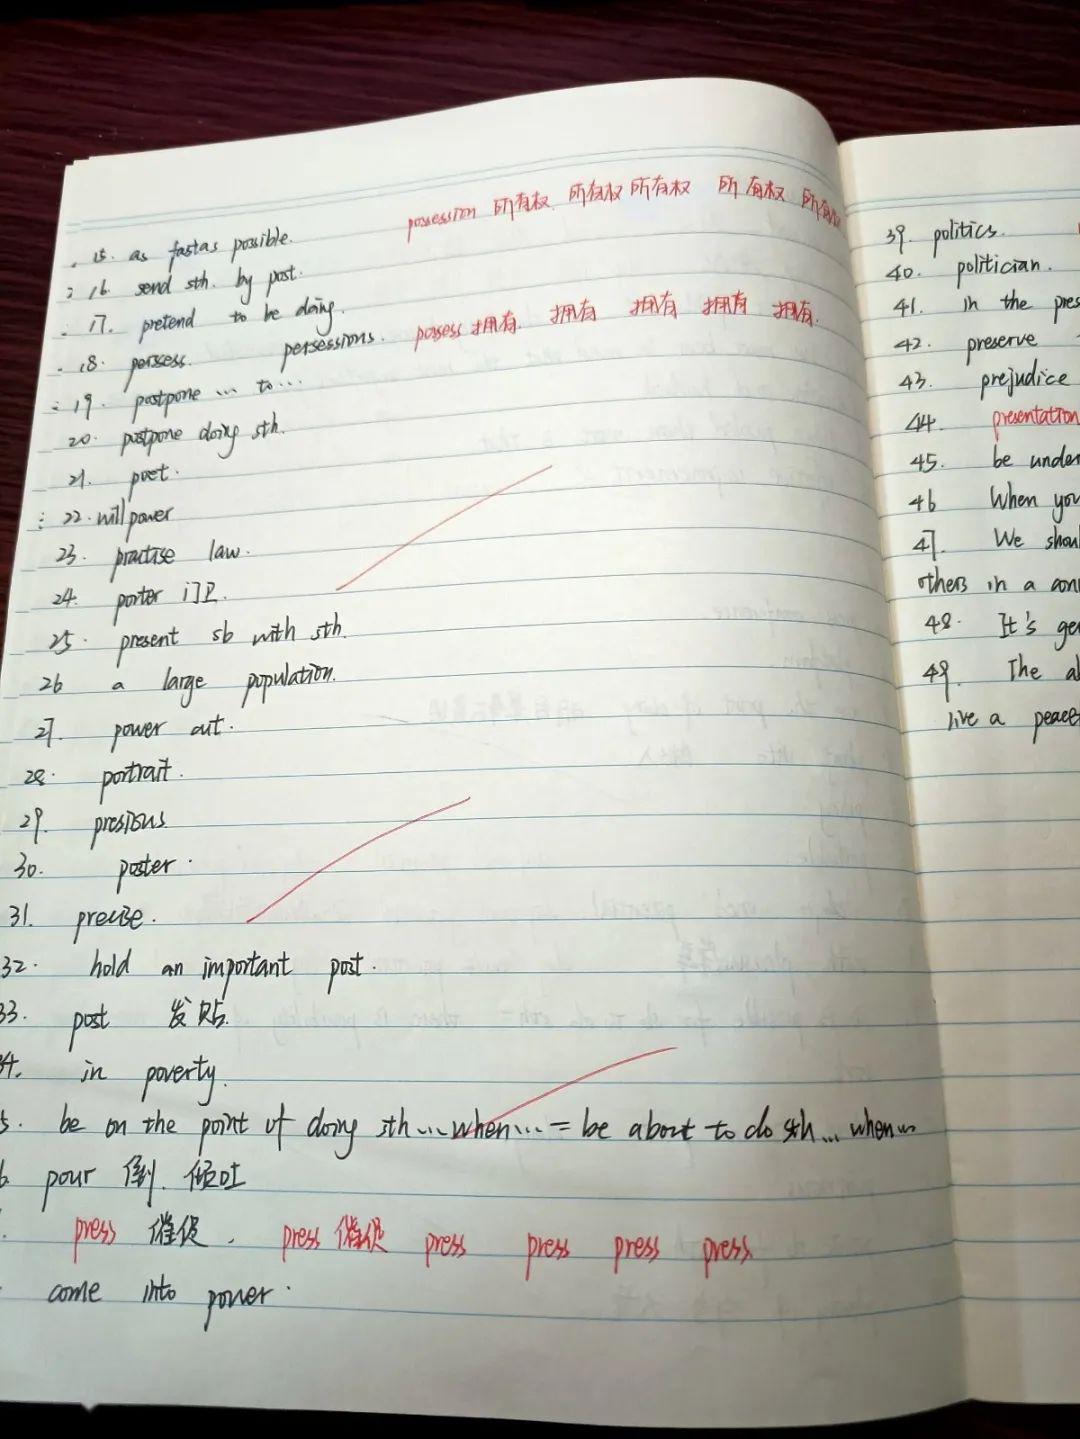 possession 所有权 所有权 所有权 所有权
15. as fastas possible.
16. send sth. by post.
17. pretend to be doing.
18. persess. persessions. possess 拥有. 拥有 拥有 拥有 拥有.
19. postpone ... to ...
20. postpone doing sth.
21. poet.
22. will power
23. practise law.
24. porter 门卫.
25. present sb with sth.
26 a large population.
27. power out.
28. portrait.
29. presious
30. poster.
31. precise.
32. hold an important post.
33. post 发贴.
in poverty.
be on the point of doing sth... when... = be about to do sth... when...
pour 倒. 倾吐
press 催促. press 催促 press press press press
come into power.
39. politics.
40. politician.
41. in the pres
42. preserve
43. prejudice
44. presentation
45. be under
46 When you
47. We shoul
others in a con
48. It's ge
49. The a
live a peace